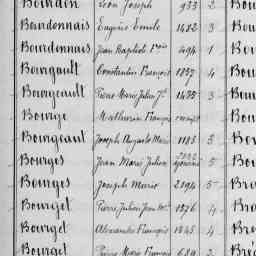 Bourdon Léon Joseph 933 2 Bou
Bourdonnais Eugène Emile 1482 3 Bou
Bourdonnais Jean Baptiste 494 1 Bou
Bourgault Constantin François 1857 4 Bou
Bourgeault Pierre Marie Julien 1475 3 Bou
Bourge Mathurin François Bou
Bourgeaul Joseph Auguste Marie 1185 3
Bourges Jean Marie Julien ajourné 5
Bourges Joseph Marie 2194 5 Br
Bourget Pierre Julien Jean 1876 4 Br
Bourget Alexandre François 1845 4 Br
Bourget Pierre Marie François 680 2 Bré